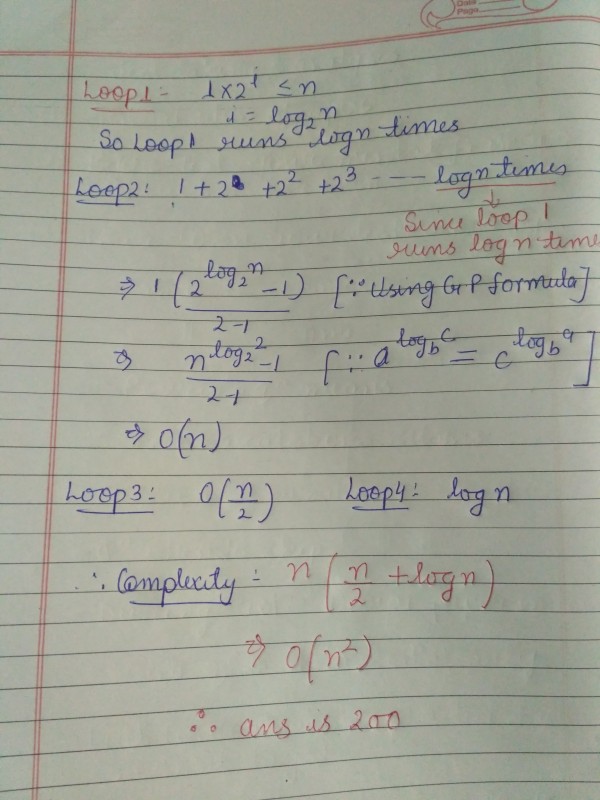 Date
Page
Loop1:- 1×2^i ≤ n
i = log₂n
So Loop1 runs logn times
Loop2: 1 + 2 + 2² + 2³ ---- logn times
↓
Since loop 1
runs log n time
⇒ 1 (2^(log₂n) - 1) / (2-1) [∵ Using GP formula]
⇒ (n^(log₂2) - 1) / (2-1) [∵ a^(log_b c) = c^(log_b a)]
⇒ O(n)
Loop3: O(n/2) Loop4: log n
∴ Complexity: n (n/2 + logn)
⇒ O(n²)
∴ ans is 200